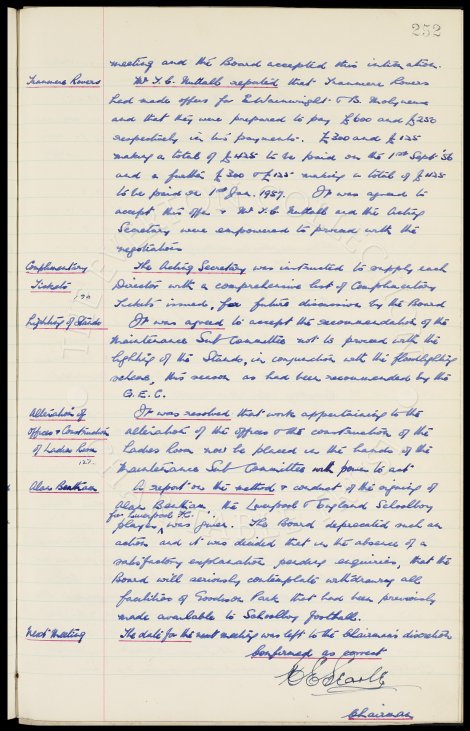 252
meeting and the Board accepted this intimation.
Tranmere Rovers
Mr J. C. Nuttall reported that Tranmere Rovers
had made offers for E. Wainwright & B. Molyneux
and that they were prepared to pay £600 and £250
respectively in two payments. £300 and £125
making a total of £425 to be paid on the 1st Sept '56
and a further £300 & £125 making a total of £425
to be paid on 1st Jan. 1957. It was agreed to
accept this offer & Mr J. C. Nuttall and the Acting
Secretary were empowered to proceed with the
negotiations
Complimentary
Tickets
The Acting Secretary was instructed to supply each
Director with a comprehensive list of Complimentary
Tickets issued, for future discussion by the Board
Lighting of Stands
It was agreed to accept the recommendation of the
Maintenance Sub Committee not to proceed with the
lighting of the Stands, in conjunction with the floodlighting
scheme, this season as had been recommended by the
G.E.C.
Alteration of
Offices & Construction
of Ladies Room
127.
It was resolved that work appertaining to the
alteration of the offices & the construction of the
Ladies Room now be placed in the hands of the
Maintenance Sub Committee with power to act
Alan Bentham
A report on the method & conduct of the signing of
Alan Bentham, the Liverpool & England Schoolboy
for Liverpool F.C.
player, was given. The Board deprecated such an
action and it was decided that in the absence of a
satisfactory explanation pending enquiries, that the
Board will seriously contemplate withdrawing all
facilities of Goodison Park that had been previously
made available to Schoolboy football.
Next Meeting
The date for the next meeting was left to the Chairman's discretion
Confirmed as correct
C E Searle
Chairman